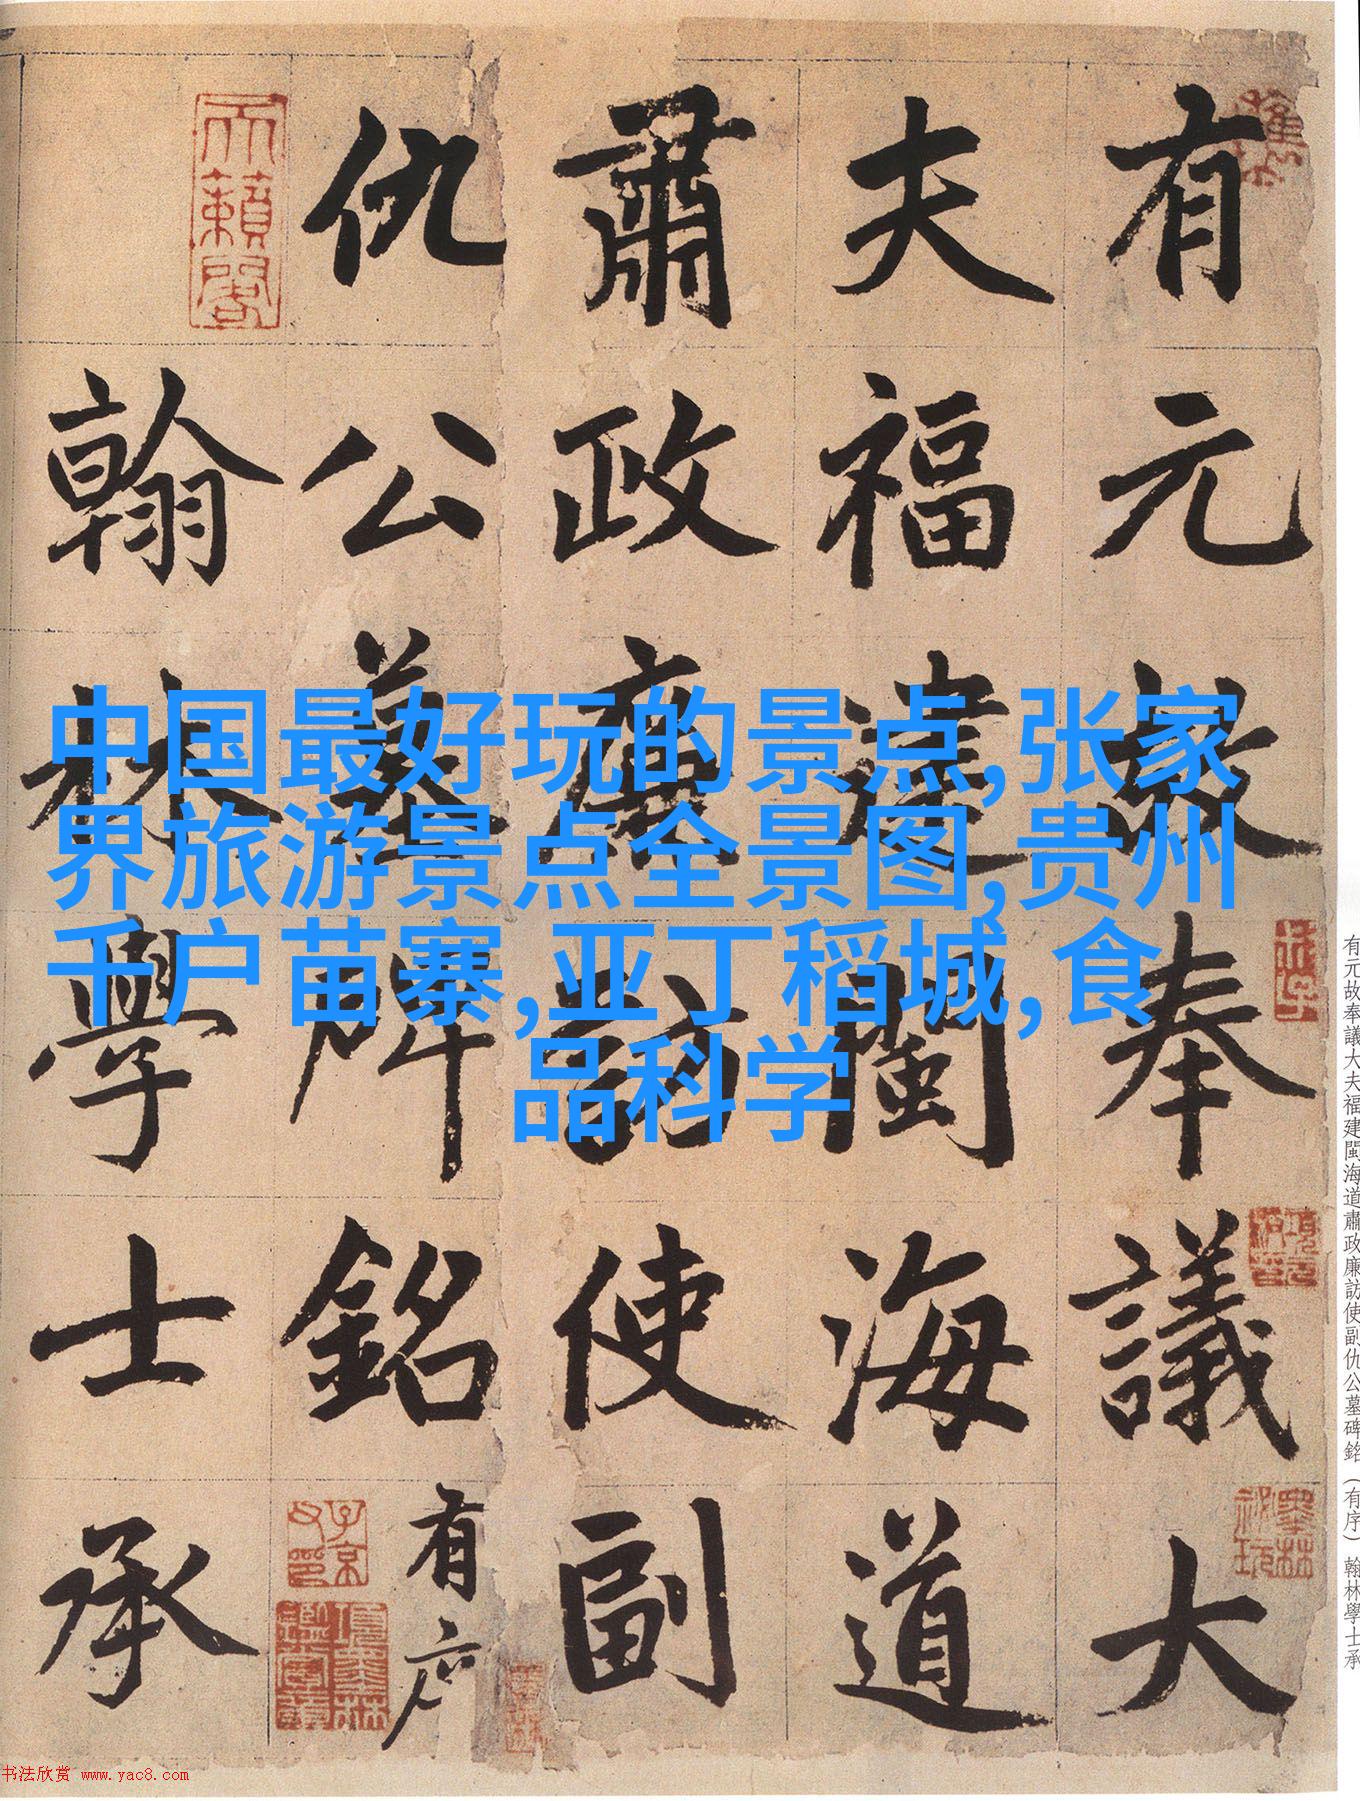 有元故奉議大
夫福建閩海道
肅政廉訪使副
仇公墓碑銘有序
翰林學士承
天籟閣
子京父印
項墨林鑑賞章
墨林祕玩
中国最好玩的景点,张家
界旅游景点全景图,贵州
千户苗寨,亚丁稻城,食
品科学
有元故奉議大夫福建閩海道肅政廉訪使副仇公墓碑銘（有序）翰林學士承
书法欣赏 www.yac8.com